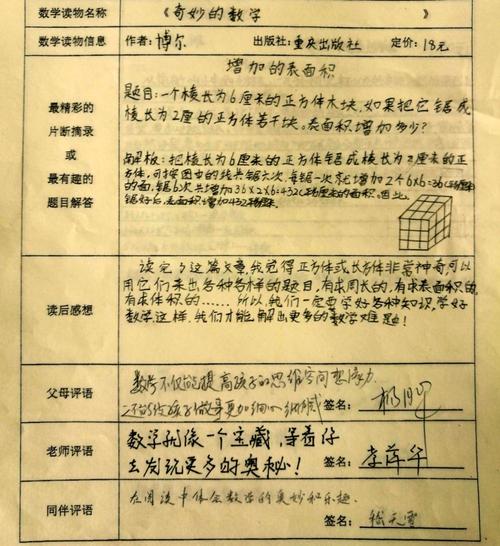 数学读物名称 《奇妙的数学 》
数学读物信息 作者:博尔 出版社:重庆出版社 定价:18元
最精彩的
片断摘录
或
最有趣的
题目解答
增加的表面积
题目:一个棱长为6厘米的正方体木块,如果把它锯成
棱长为2厘的正方体若干块。表面积增加多少?
解板:把棱长为6厘米的正方体锯成棱长为2厘米的正
方体,可按图中的线共锯六次,每锯一次就增加2个6x6=36(平方厘米)
的面,锯6次共增加36x2x6=432(平方厘米)的面积。因此,
锯好后,表面积增加432平方厘米。
读后感想
读完了这篇文章,我觉得正方体或长方体非常神奇可以
用它们来出各种各样的题目,有求周长的,有求表面积的,
有求体积的……所以,我们一定要学好各种知识,学好
数学这样,我们才能解出更多的数学难题!
父母评语
数学不仅能提高孩子的思维空间想像力
签名:
老师评语
数学就像一个宝藏,等着你
去发现更多的奥秘!
签名:李萍华
同伴评语
在阅读中体会数学的奥妙和乐趣.
签名: